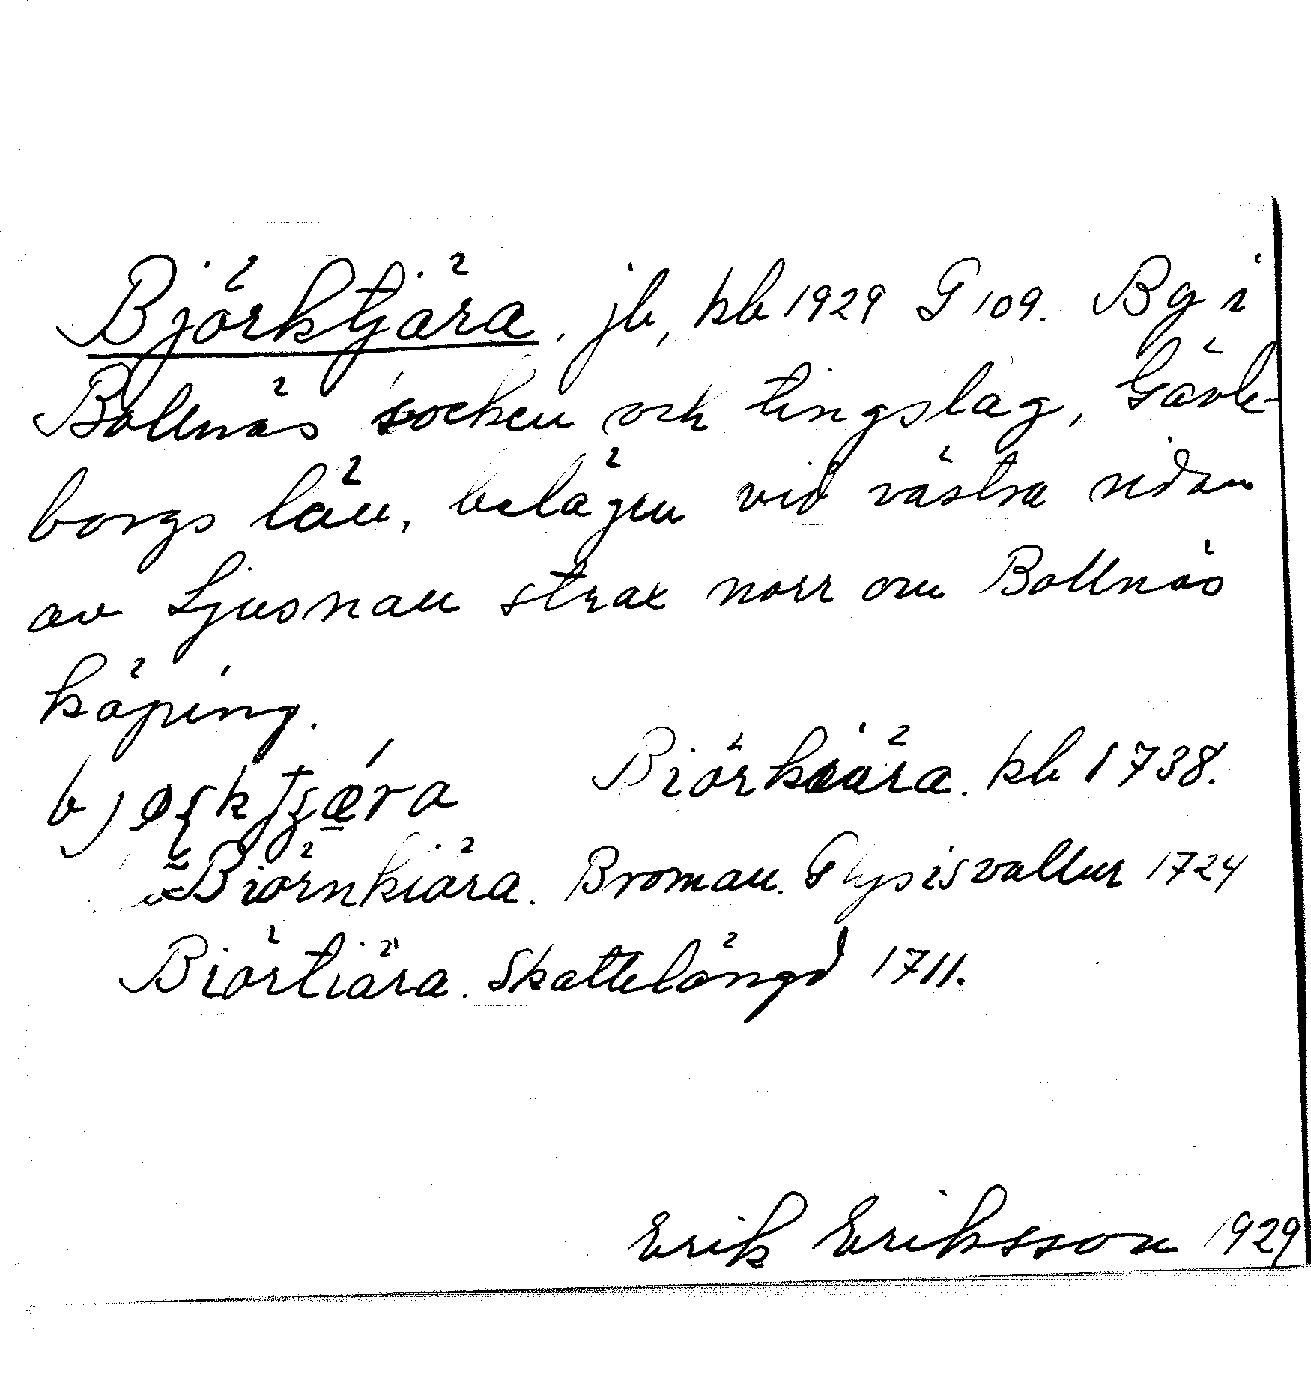 Björktjära. jb, kb 1929 G 109. Bg i
Bollnäs socken och tingslag, Gävle-
borgs län, belägen vid västra sidan
av Ljusnan strax norr om Bollnäs
köping.
Biörkiära. kb 1738.
Biörnkiära. Broman. Glysisvallur 1724
Biörtiära. Skattelängd 1711.
Erik Eriksson 1929